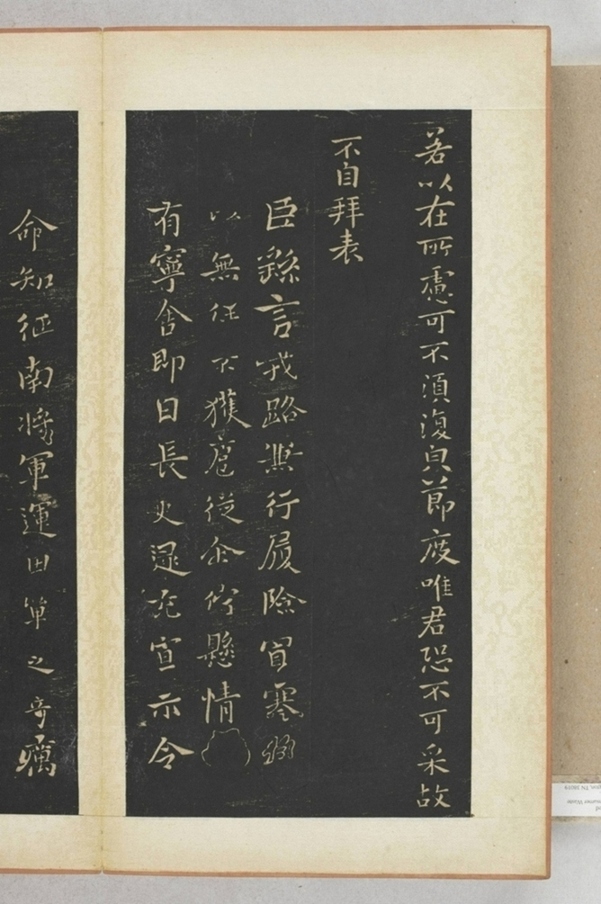 若以在所慮可不須復皃節度唯君恐不可采故
不自拜表
臣繇言戎路兼行履險冒寒
以無任不獲扈從企佇懸情
有寧舍即日長史逯充宣示令
命知征南將軍運田單之奇厲